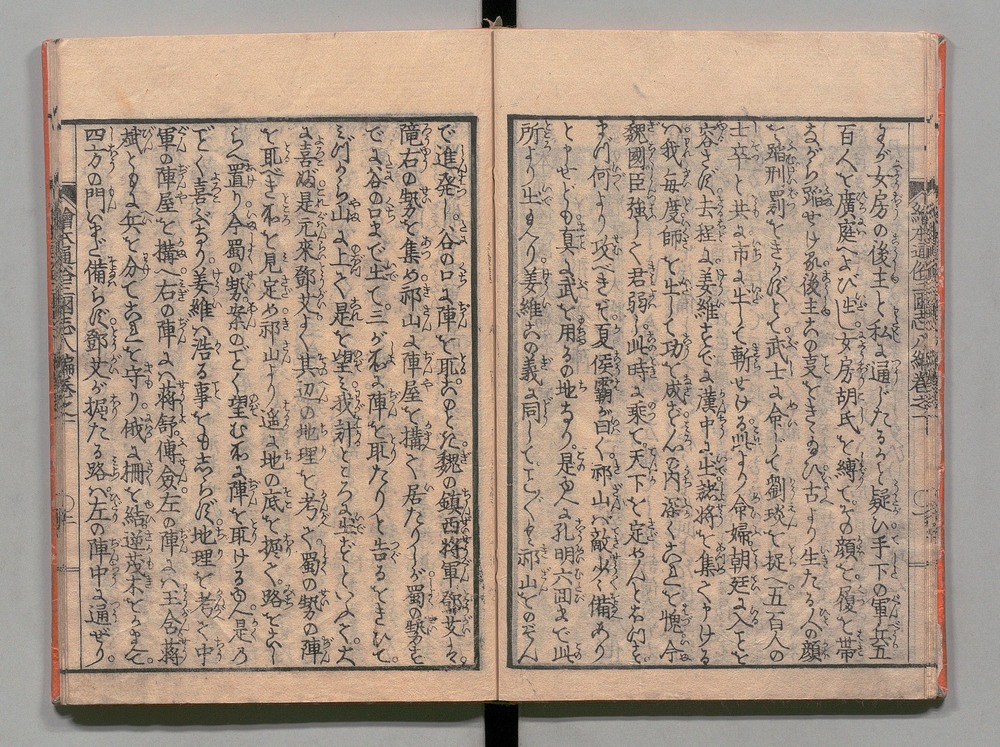 繪本通俗三國志八編巻之一
わが女房の後主と私に通じたるかと疑ひ手下の軍兵五
百人を廣庭へよび出し女房胡氏を縛てその顔を履を帯
ながら踏せける後主この哀をきゝ給ひ古より生たる人の顔
を踏刑罰をきかずとて武士に命じて劉琰を捉へ五百人の
士卒と共に市に牛して斬せける此より命婦朝廷に入ことを
容さず去程に姜維すでに漢中に出諸将を集てける
は我毎度師を出して功を成ざるの内深くこれを愧今
魏國臣強して君弱し此時に乘て天下を定やんと
まづ何より攻べきぞ夏侯霸が曰く祁山は敵少く備あり
とせども真に武を用るの地なり是ゆへに孔明六回まで此
所より出もへり姜維この義に同じて祁山をのぞん
で進発し谷の口に陣を取このとき魏の鎮西将軍鄧艾は
隴右の勢を集め祁山に陣屋を構て居たりしが蜀の勢すで
に谷の口まで出て三が所に陣を取たりと告るをきひて
みづから山に上て是を望み我計ところに出ずといふて大
に喜ぶ是元來鄧艾よく其辺の地理を考へ蜀の勢の陣
を取べき所を見定め祁山より遙に地の底を掘て路をこし
らへ置り今蜀の勢案のごとく望む所に陣を取ける由是乃
どく喜ぶなり姜維は浩る事とも志らず地理を考て中
軍の陣屋を構へ右の陣には蒋舒傅僉左の陣には王含蒋
斌ともに兵を分てこれを守り俄に柵を結逆茂木をかまへ
四方の門いまだ備らず鄧艾が掘たる路は左の陣中に通ぜり
繪本通俗三國志八編巻之一